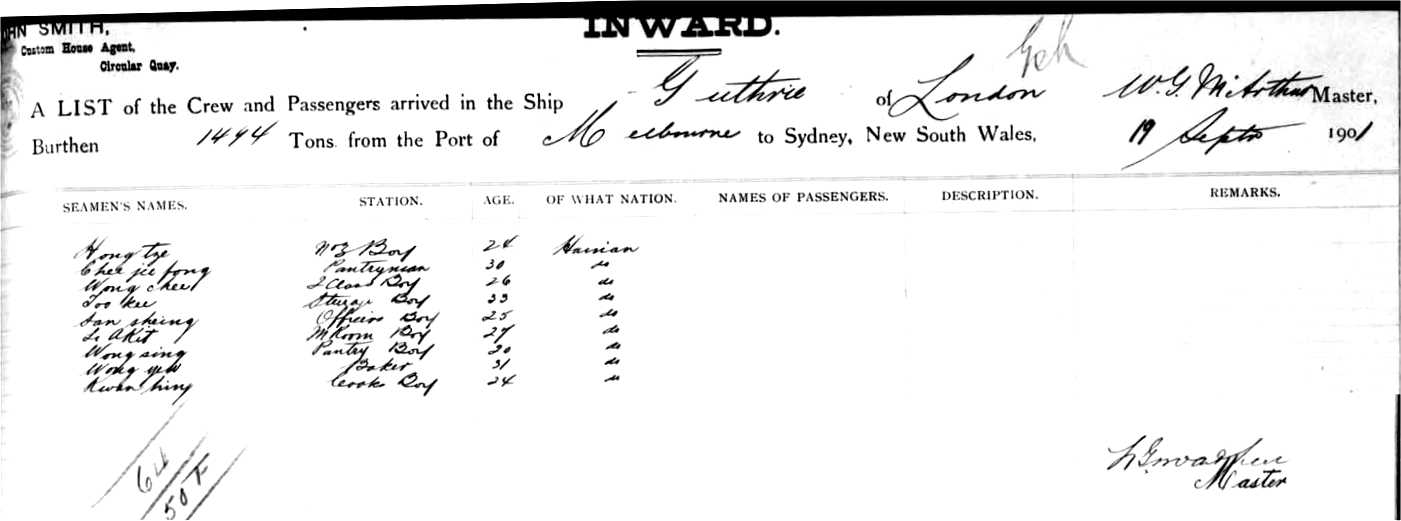 SMITH, INWARD.
Custom House Agent,
Circular Quay.
A LIST of the Crew and Passengers arrived in the Ship Guthrie of London W. G. McArthur Master,
Burthen 1494 Tons from the Port of Melbourne to Sydney, New South Wales, 19 Septr 1901
SEAMEN'S NAMES. STATION. AGE. OF WHAT NATION. NAMES OF PASSENGERS. DESCRIPTION. REMARKS.
Hong tze No 3 Boy 24 Hainan
Chee jie fong Pantryman 30 do
Wong chee 2 Class Boy 26 do
Too kee Steerage Boy 33 do
San sheing Officers Boy 25 do
Li AKit M Room Boy 27 do
Wong sing Pantry Boy 20 do
Wong yew Baker 31 do
Kwan hing Cooks Boy 24 do
64
50 F
Master